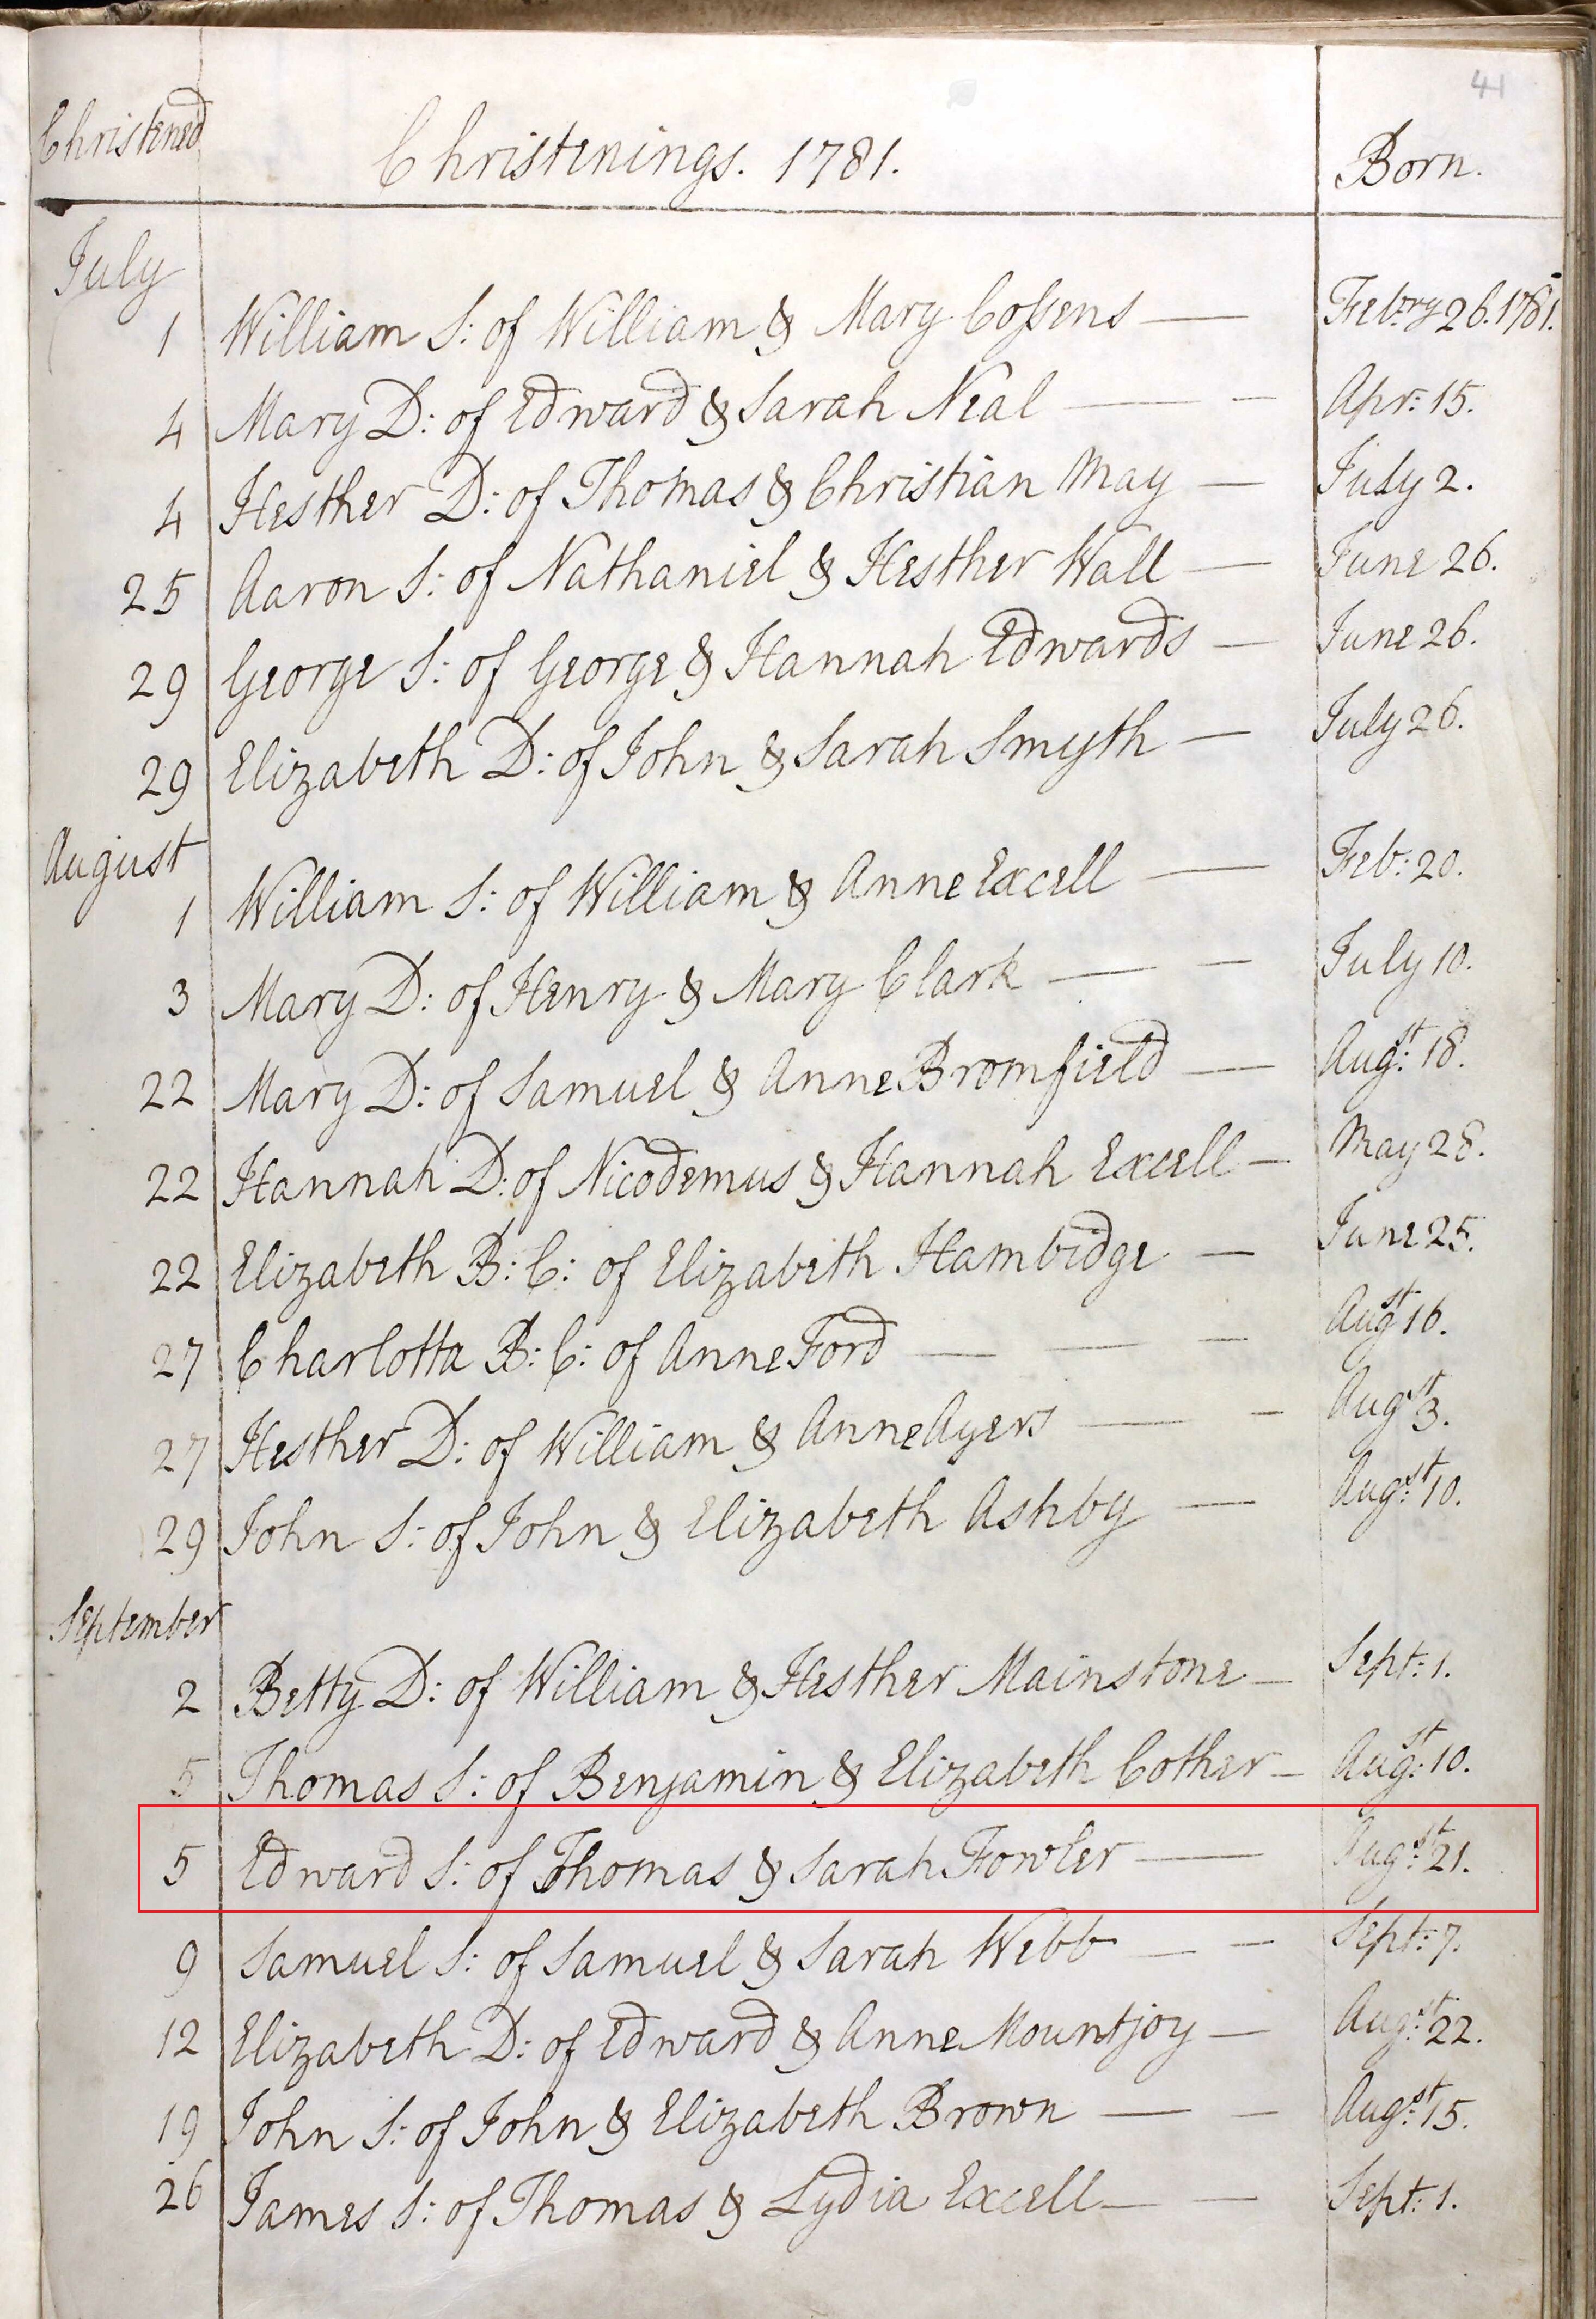 41
Christened Christenings. 1781. Born.
July
1 William S: of William & Mary Cossens — Feb:ry 26. 1781.
4 Mary D: of Edward & Sarah Neal — — Apr: 15.
4 Hesther D: of Thomas & Christian May — July 2.
25 Aaron S: of Nathaniel & Hesther Wall — June 26.
29 George S: of George & Hannah Edwards — June 26.
29 Elizabeth D: of John & Sarah Smyth — July 26.
August
1 William S: of William & Anne Excell — Feb: 20.
3 Mary D: of Henry & Mary Clark — — July 10.
22 Mary D: of Samuel & Anne Bromfield — Aug:st 18.
22 Hannah D: of Nicodemus & Hannah Excell — May 28.
22 Elizabeth B: C: of Elizabeth Hambidge — June 25.
27 Charlotta B: C: of Anne Ford — — — Augst 16.
27 Hesther D: of William & Anne Ayers — — Aug:st 3.
29 John S: of John & Elizabeth Ashby — Aug:st 10.
September
2 Betty D: of William & Hesther Mainstone — Sept: 1.
5 Thomas S: of Benjamin & Elizabeth Cother — Aug:st 10.
5 Edward S: of Thomas & Sarah Fowler — Aug:st 21.
9 Samuel S: of Samuel & Sarah Webb — — Sept: 7.
12 Elizabeth D: of Edward & Anne Mountjoy — Aug:st 22.
19 John S: of John & Elizabeth Brown — — Aug:st 15.
26 James S: of Thomas & Lydia Excell — — Sept: 1.